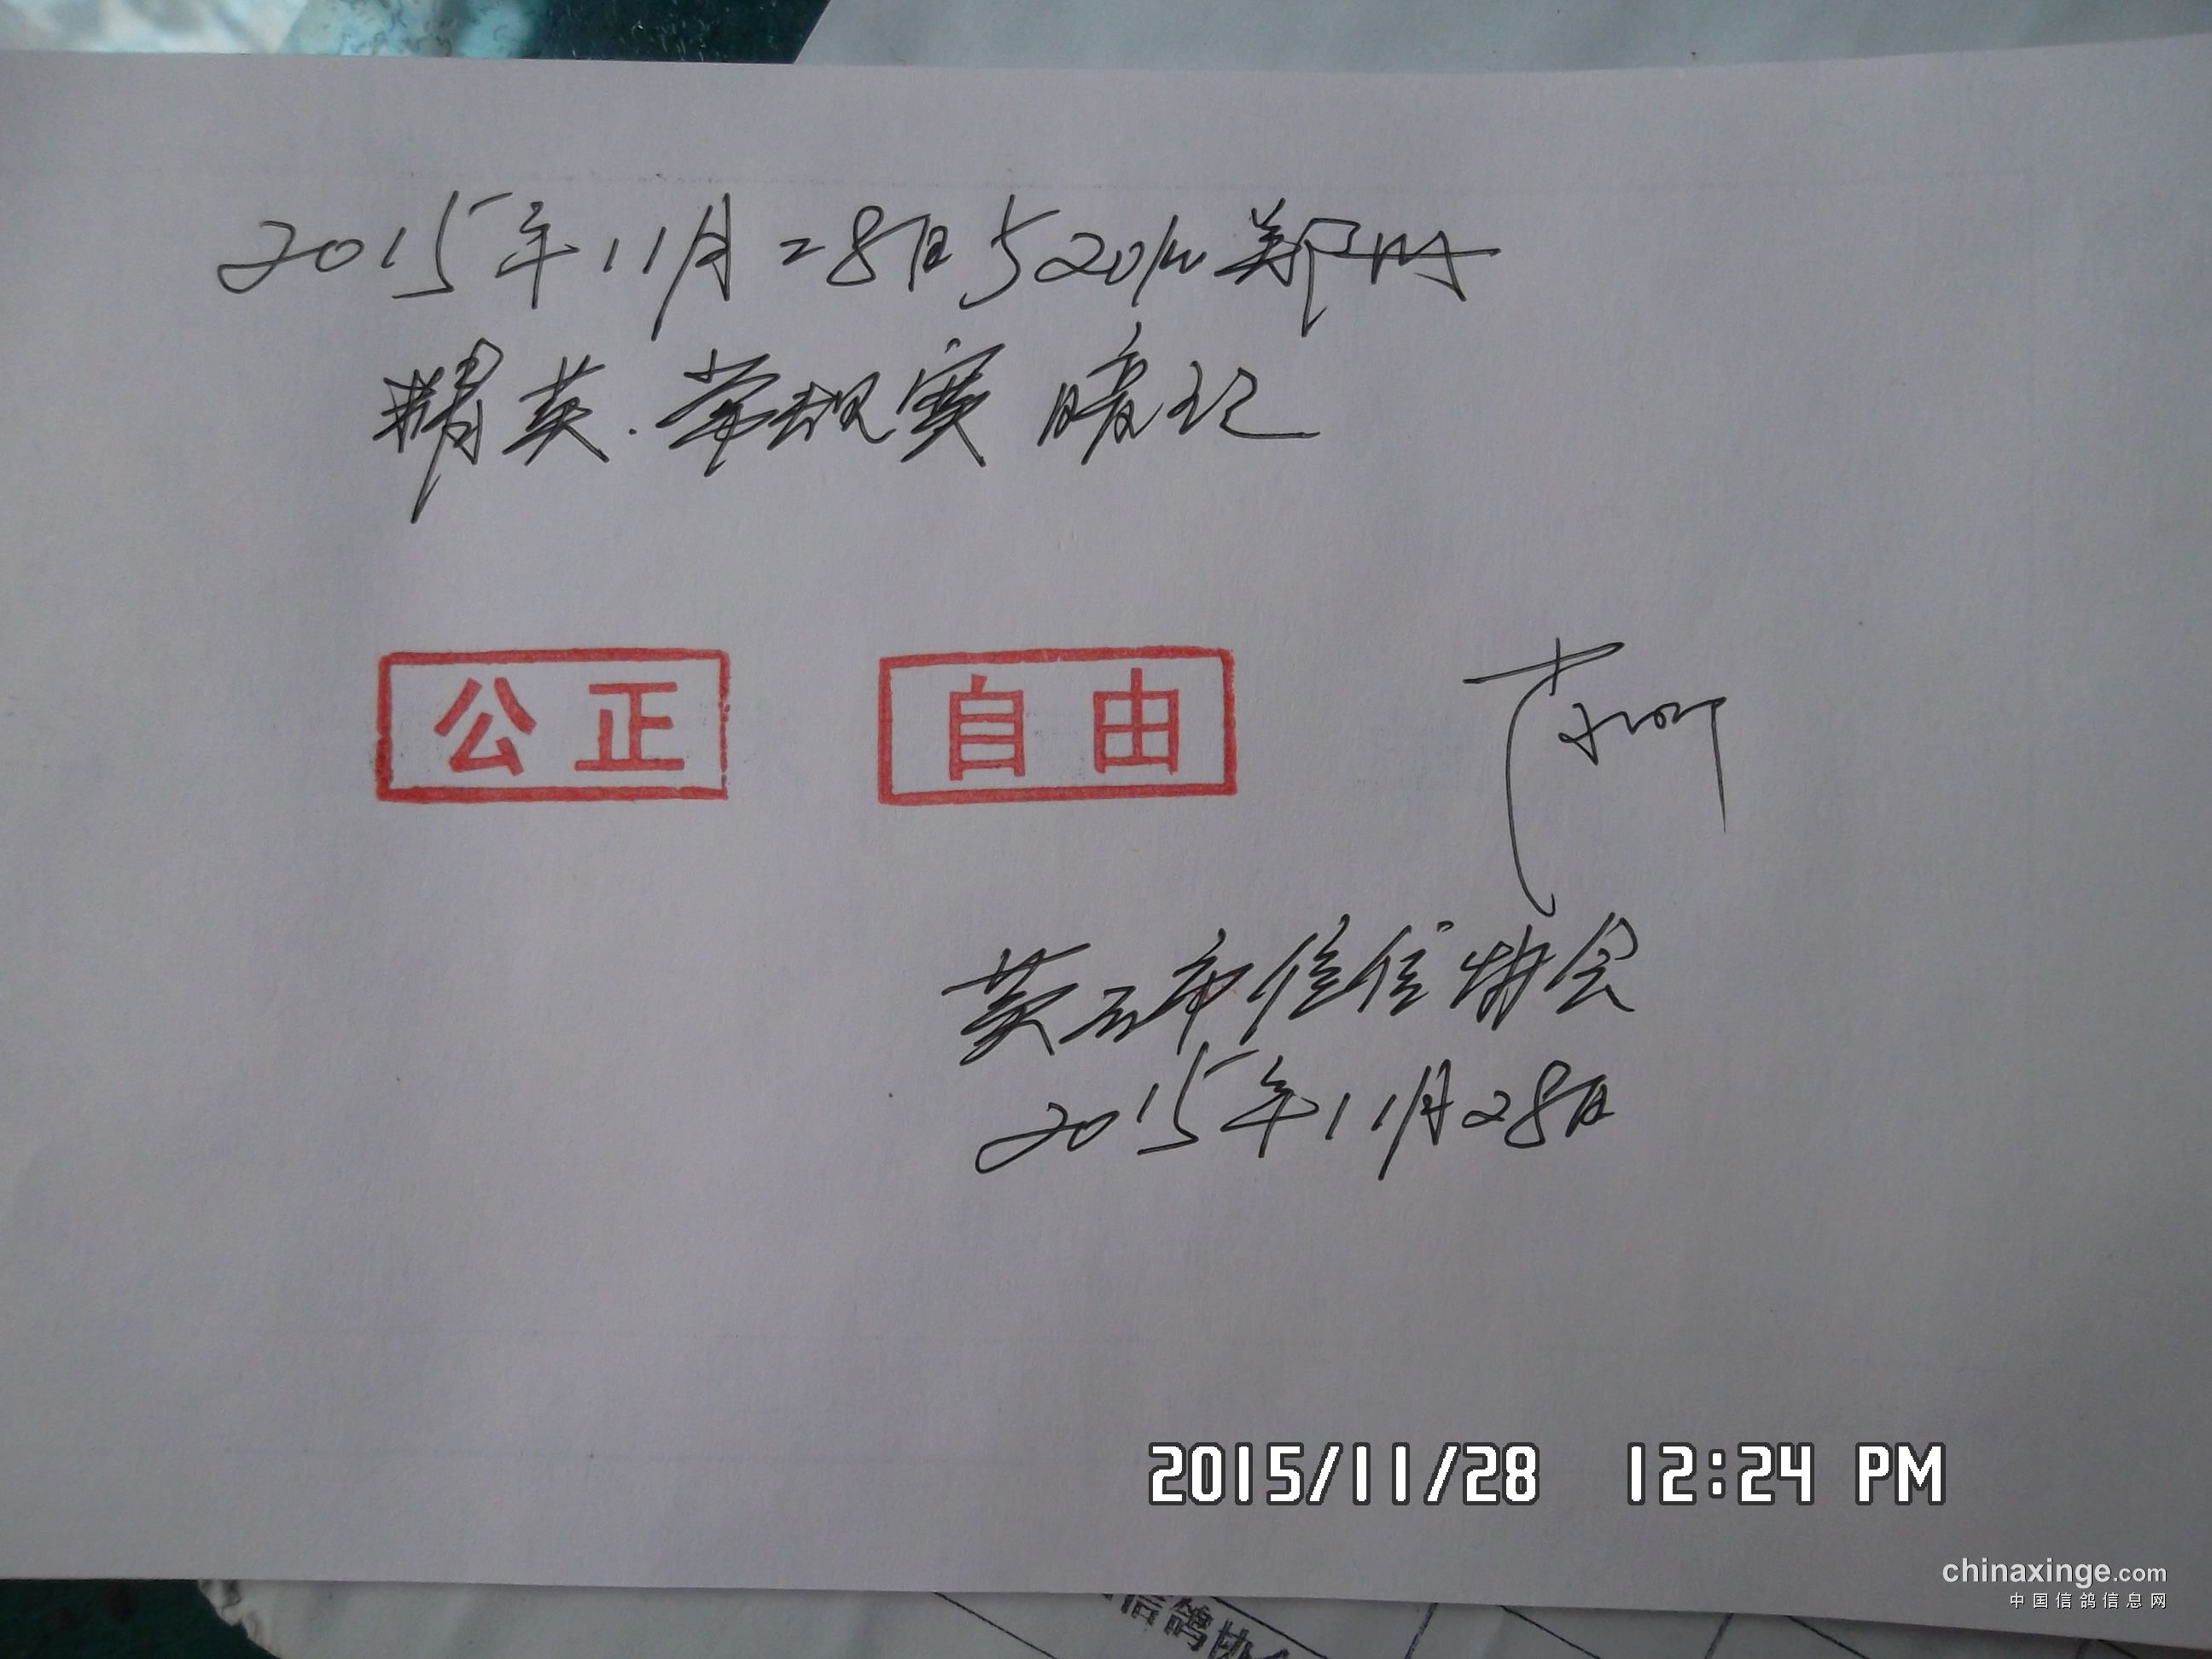 2015年11月28日520km郑州
精英.常规赛 暗记
公正 自由
市信 协会
2015年11月28日
2015/11/28 12:24 PM
chinaxinge.com
中国信鸽信息网
信鸽协